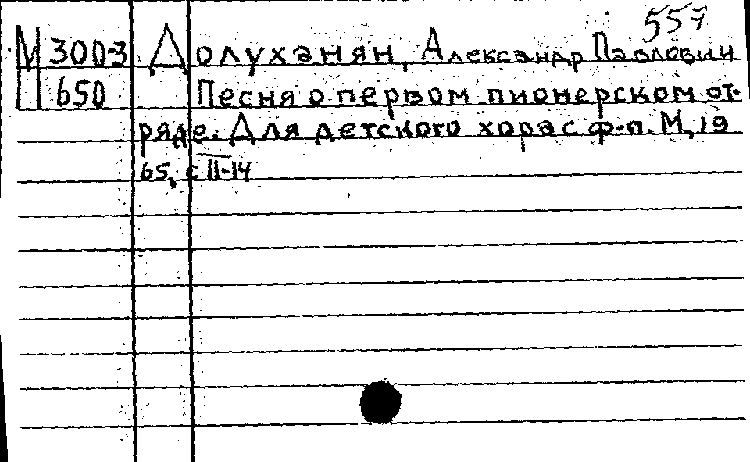 557
М 300-3 Долуханян, Александр Павлович
650 Песня о первом пионерском от-
ряде. Для детского хора с ф-п. М, 19
65, с 11-14